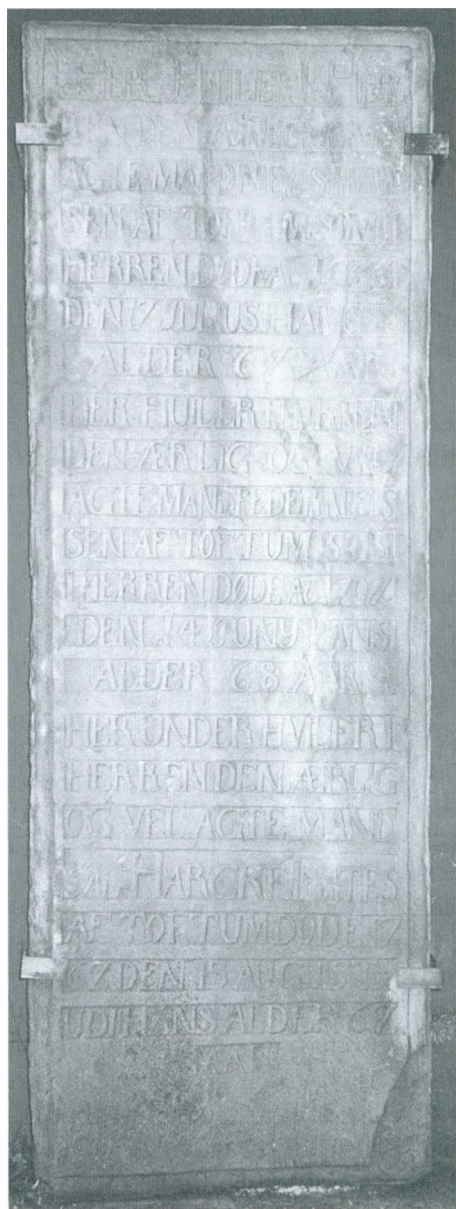 HER HUILER I HER
REN DEN ÆRLIG OG VEL
AGTE MAND
SEN AF TOFTUM SOM I
HERREN DØDE AO
DEN 17 JULIUS HANS
ALDER 67 AAR
HER HUILER I HERREN
DEN ÆRLIG OG VEL
AGTE MAND PEDER NIELS
SEN AF TOFTUM SOM
I HERREN DØDE AO
DEN 14 JUNY HANS
ALDER 68 AAR
HER UNDER HVILER I
HERREN DEN ÆRLIG
OG VEL AGTE MAND
SAL HARCKE
AF TOFTUM DØDE 17
67 DEN 15 AUGUSTI
UDI HANS ALDER 67
AAR